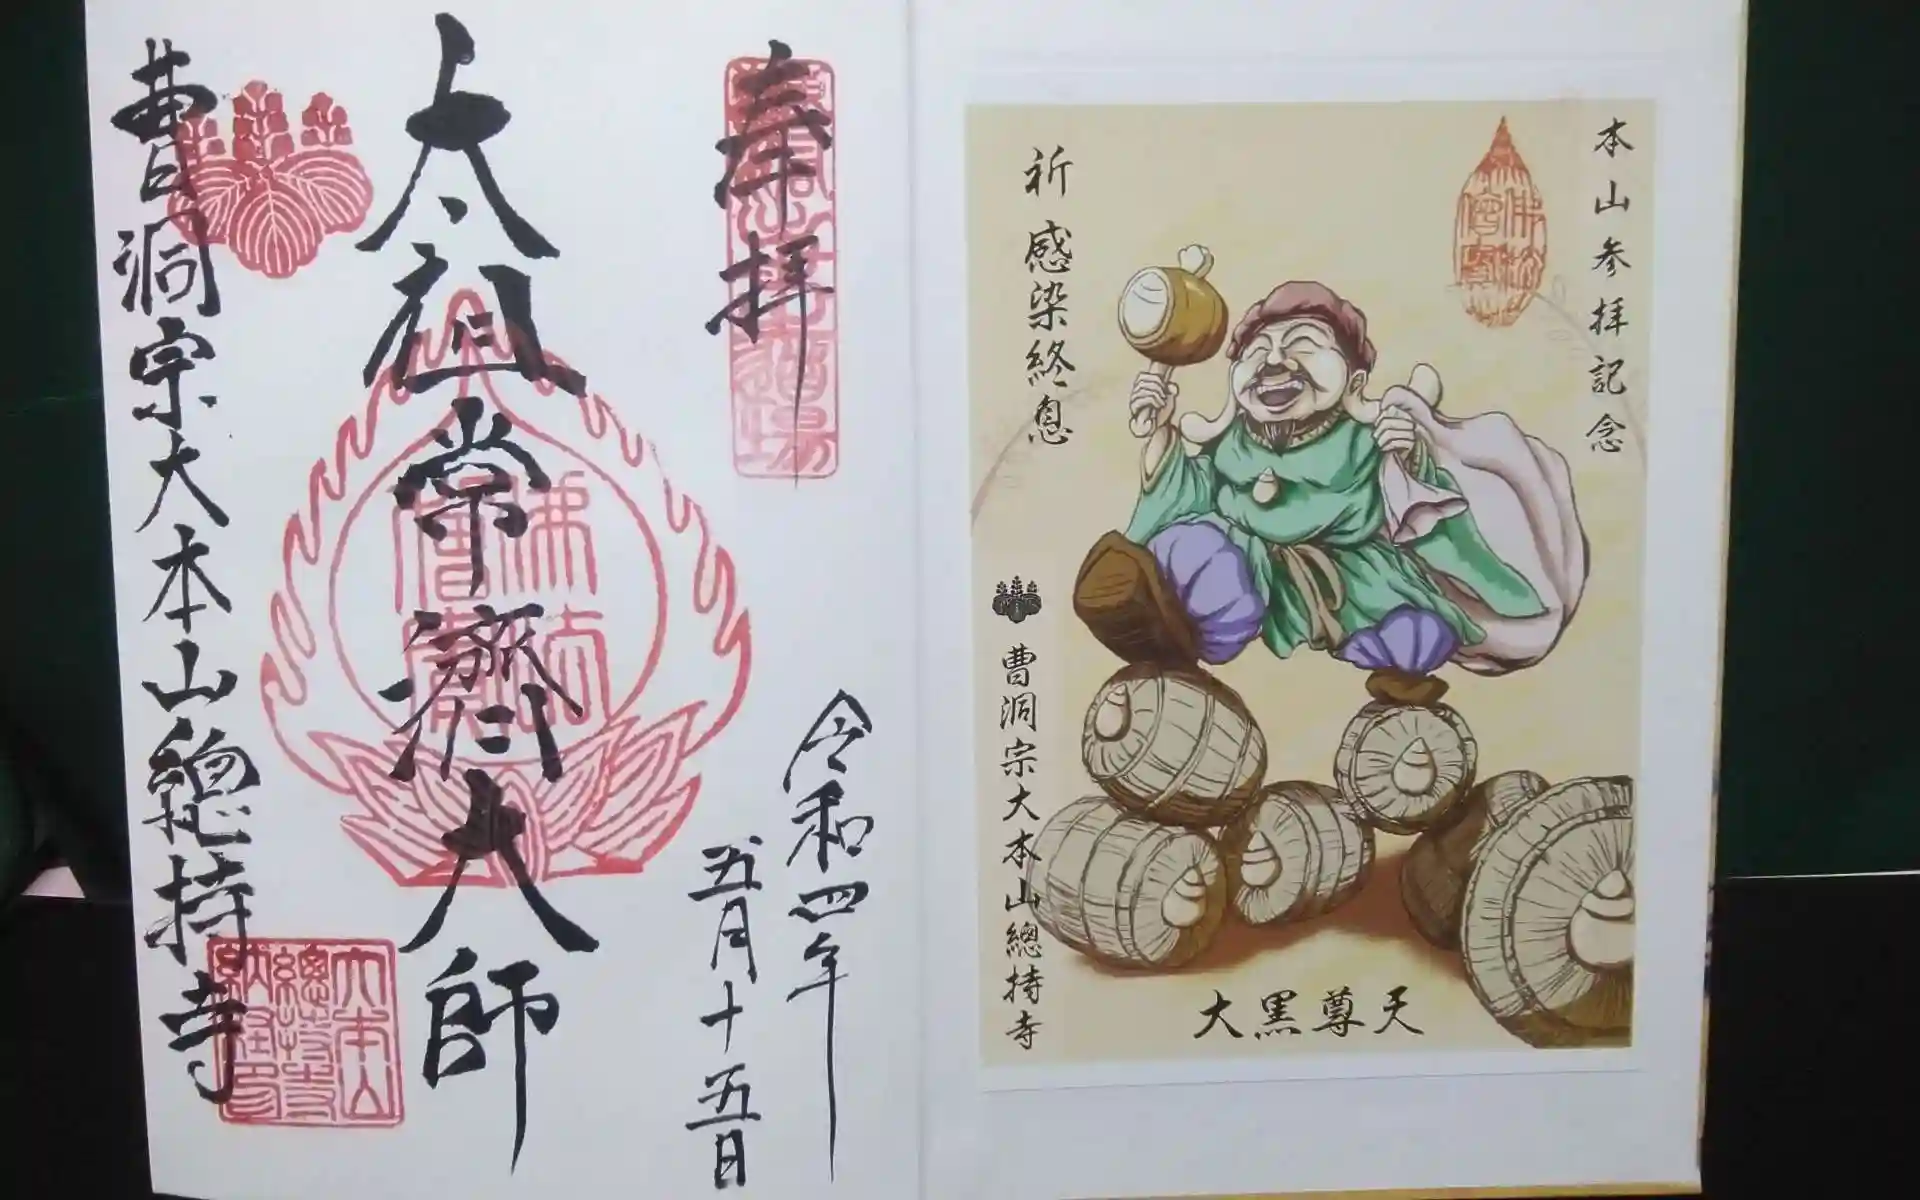 本山参拝記念
佛法僧寶
祈 感染終息
曹洞宗大本山總持寺
大黒尊天
奉拝
令和四年
五月十五日
太祖常濟大師
佛法僧寶
曹洞宗大本山總持寺
大本山
總持寺
納経印